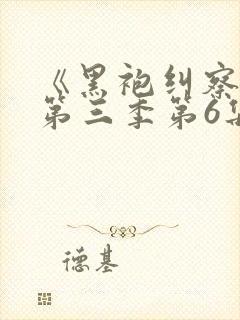 《黑袍纠察
第三季第6集
德基